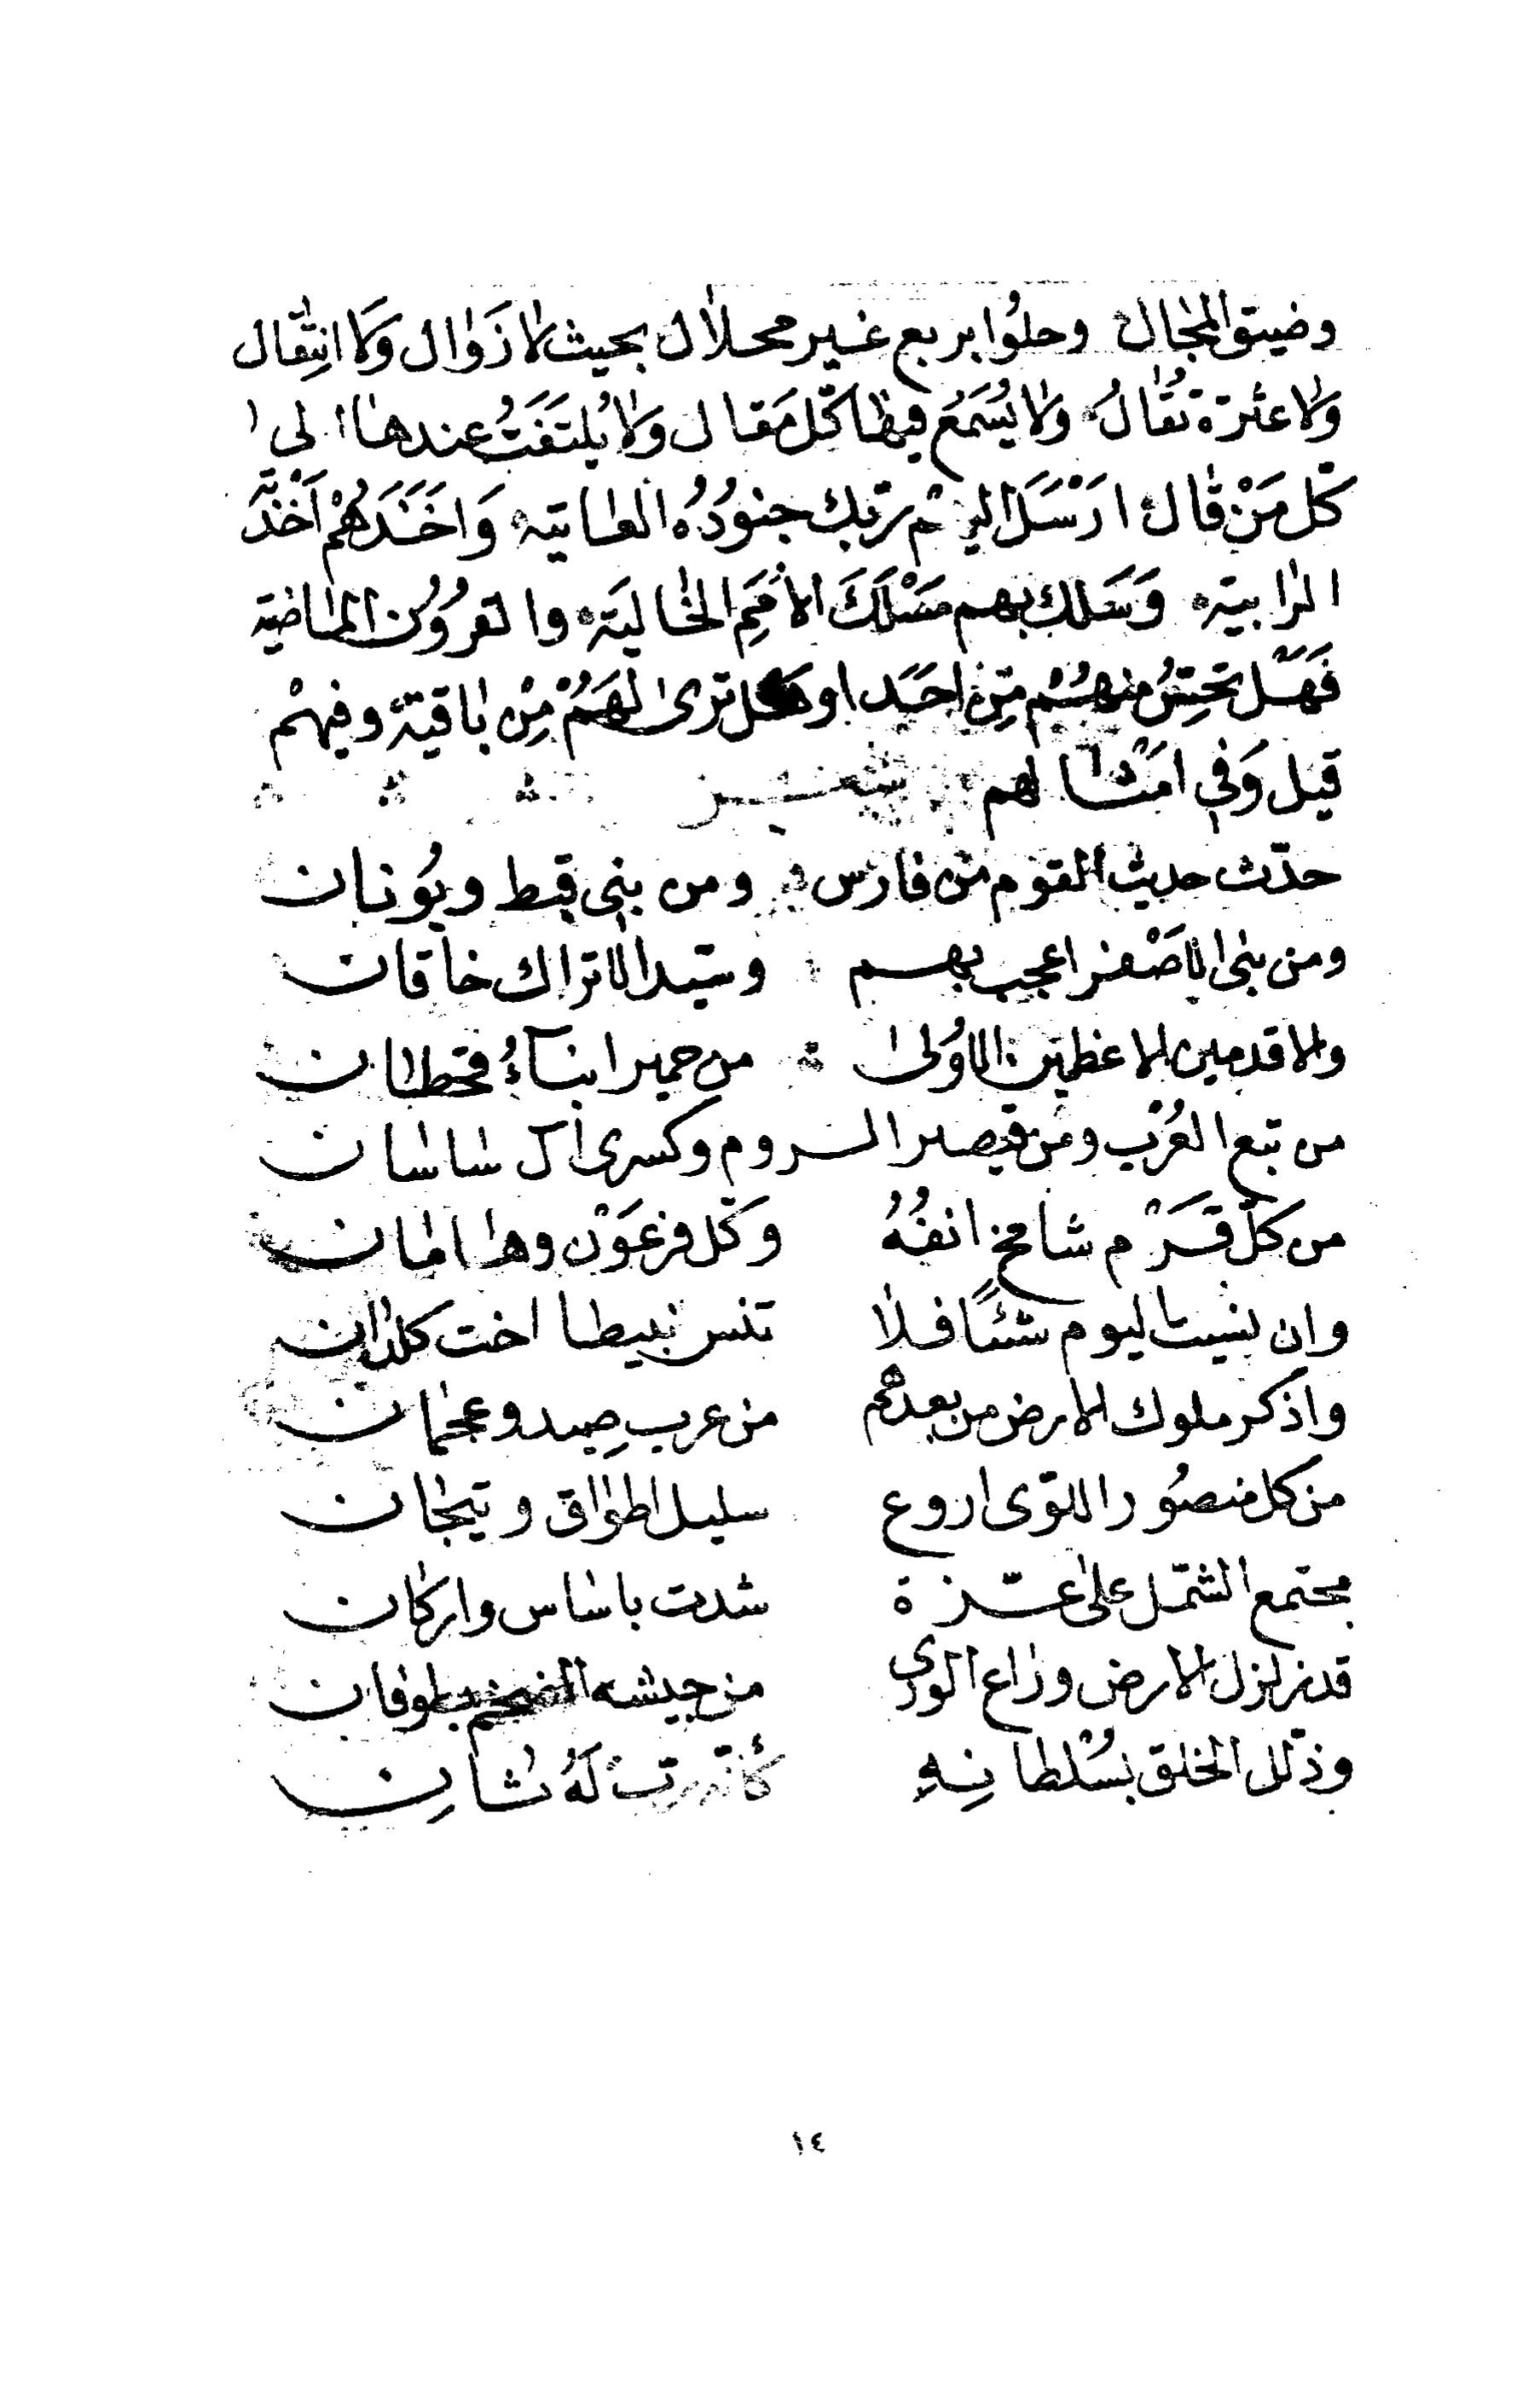 وضيق المجال وحلوا بربع غير محلال بحيث لا زوال ولا انتقال
ولا عثرة تقال ولا يسمع فيها كل مقال ولا يلتفت عندها الى
كل من قال ارسل اليهم ربك جنوده العاتيه واخذهم اخذة
الرابية وسلك بهم مسلك الأمم الخالية والقرون الماضية
فهل تحس منهم من احد او هل ترى لهم من باقية وفيهم
قيل وفي امثالهم شعر
حدّث حديث القوم من فارس ومن بني قبط ويونان
ومن بني الاصفر اعجب بهم وسيد الاتراك خاقان
والاقدمين الاعظمين الاولى من حمير ابناء قحطان
من تبع العرب ومن قيصر الروم وكسرى آل ساسان
من كل قرم شامخ انفه وكل فرعون وهامان
وان نسيت اليوم شئا فلا تنس نبيطا اخت كلدان
واذكر ملوك الارض من بعدهم من عرب صيد وعجمان
من كل منصور اللوى اروع سليل اطواق وتيجان
مجتمع الشمل على عزة شدت باساس واركان
قد زلزل الارض وراع الورى من جيشه الضخم بطوفان
وذلل الخلق بسلطانه كأنه رب له شان
١٤